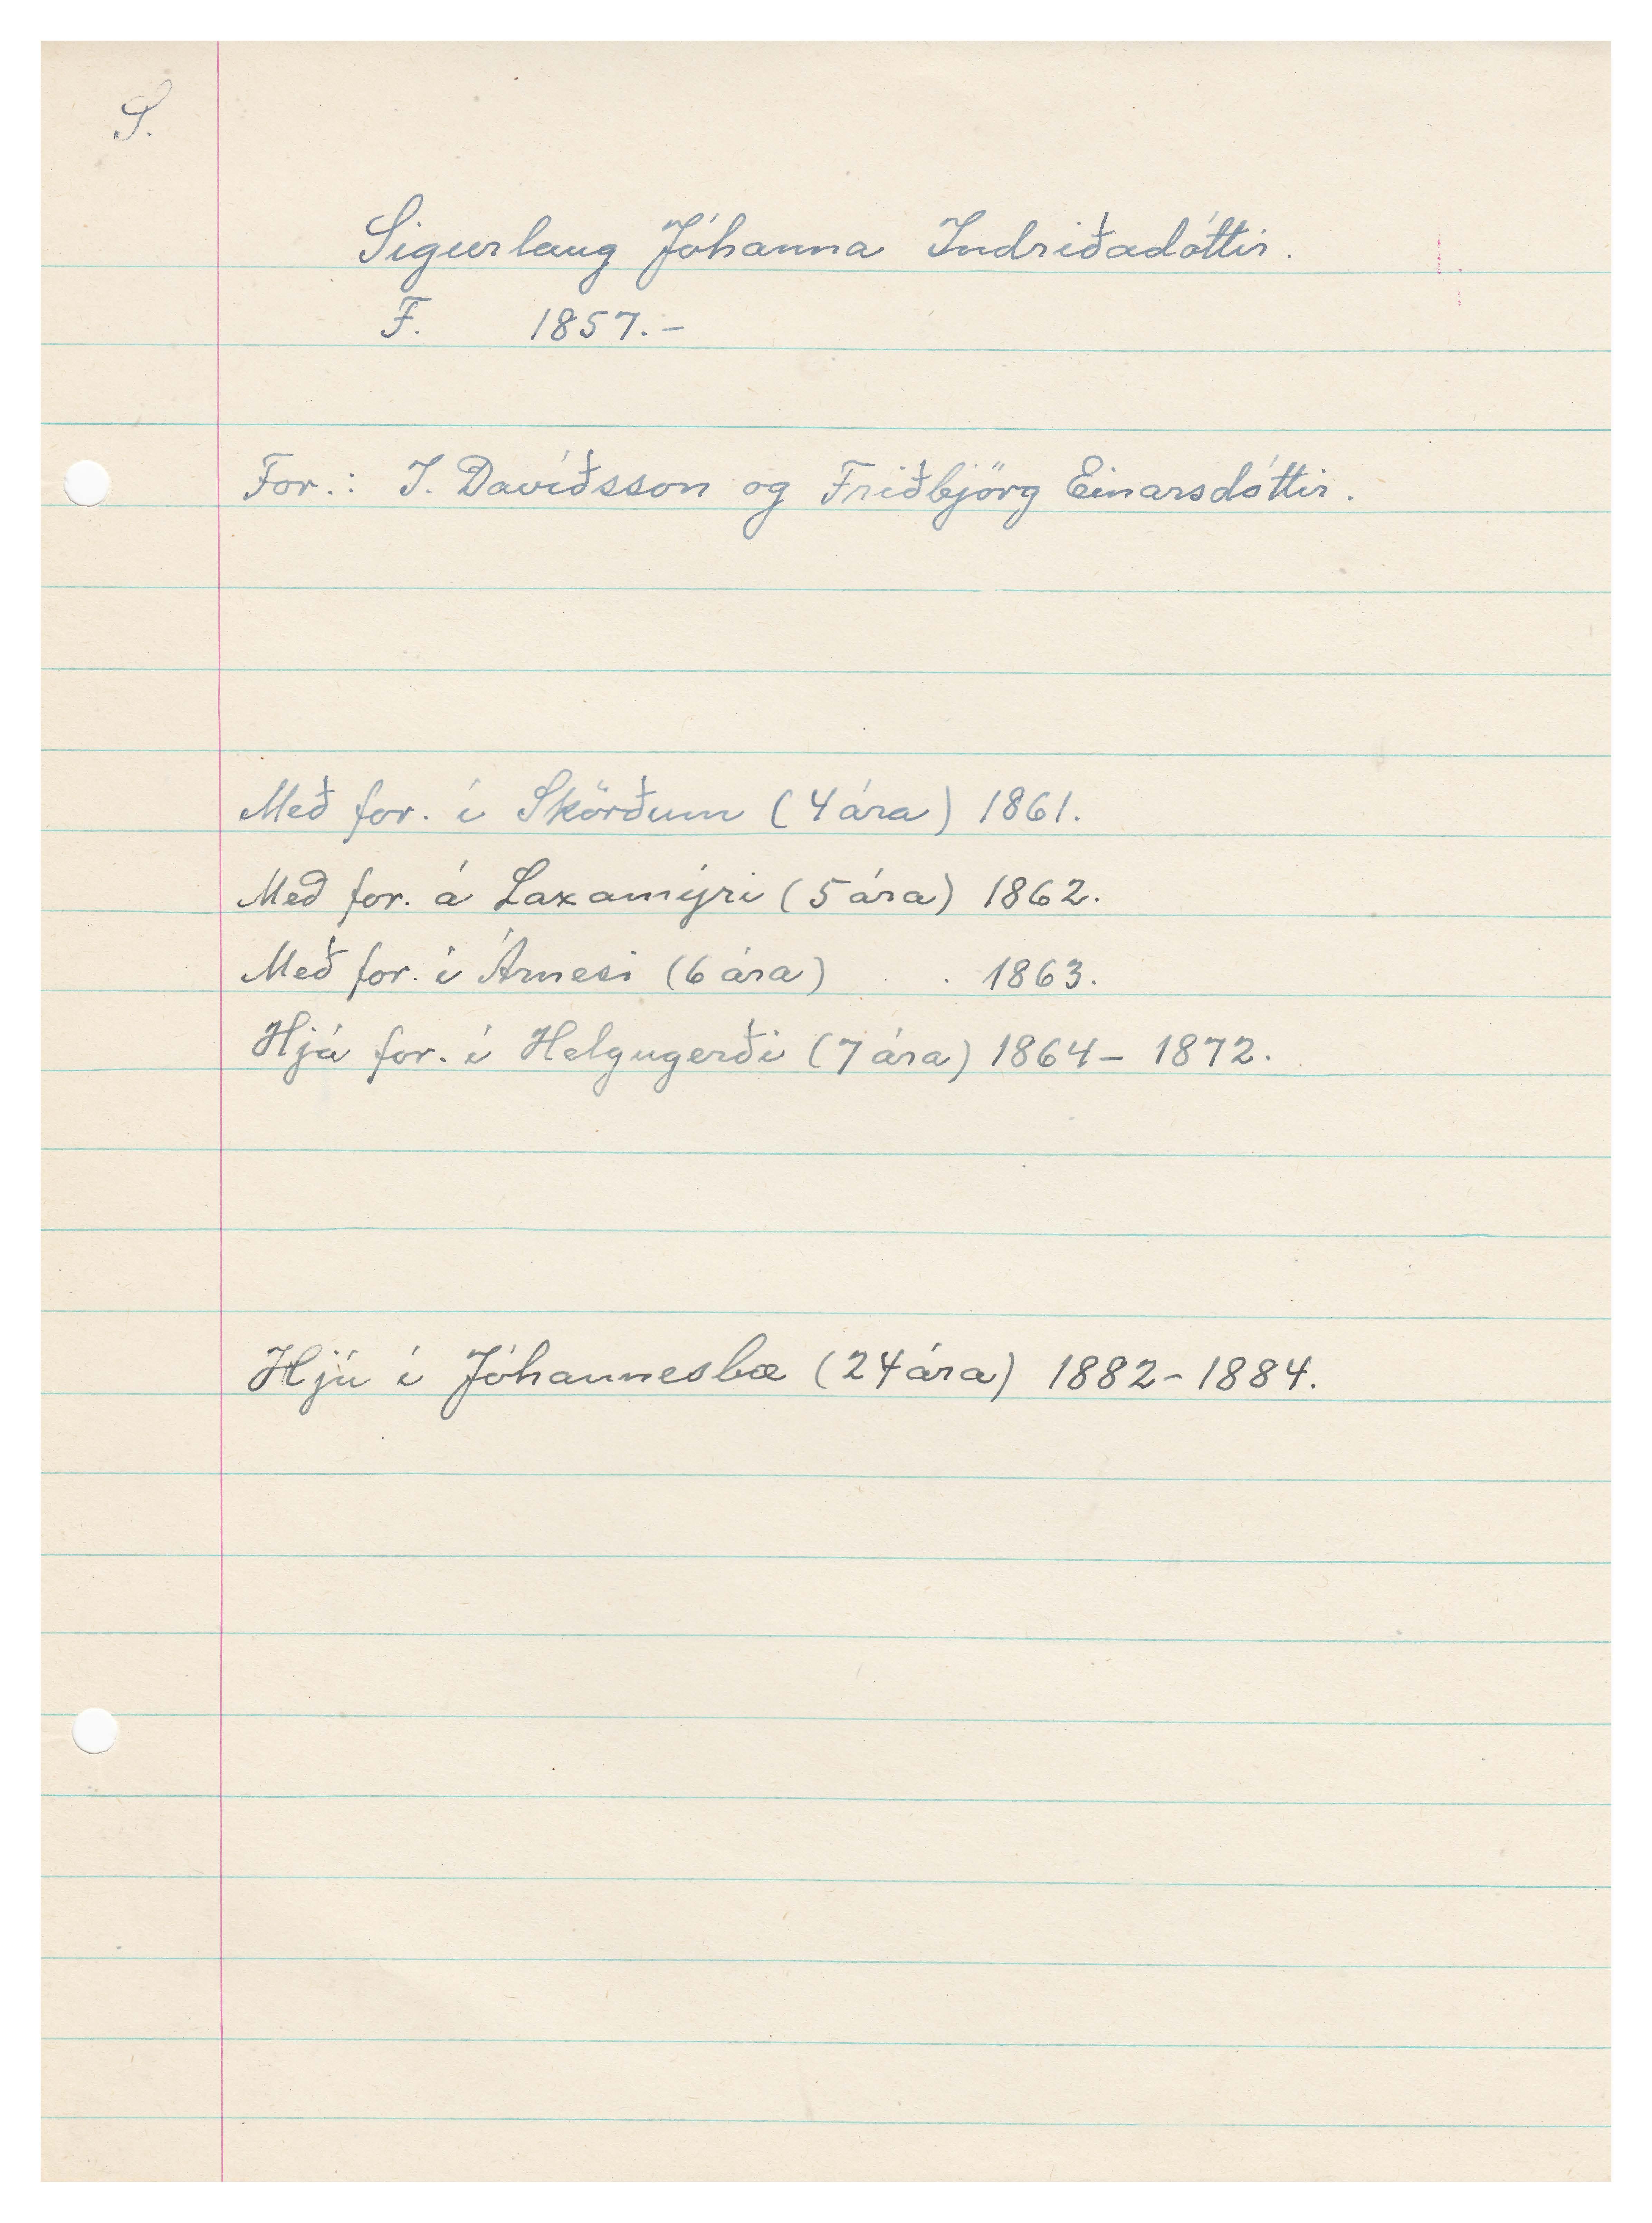 S.
Sigurlaug Jóhanna Indriðadóttir.
F. 1857.-
For.: I. Davíðsson og Friðbjörg Einarsdóttir.
Með for. í Skörðum (4 ára) 1861.
Með for. á Laxamýri (5 ára) 1862.
Með for. í Árnesi (6 ára) 1863.
Hjá for. í Helgugerði (7 ára) 1864 - 1872.
Hjú í Jóhannesbæ (24 ára) 1882 - 1884.